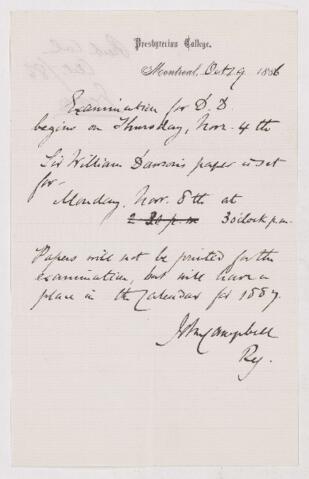 Presbyterian College,
Montreal, Oct 29 1886
Examination for D. D.
begins on Thursday, Nov. 4 th
Sir William Dawson's paper is set
for
Monday, Nov. 8th at
2.30 p.m 3 o'clock p.m.
Papers will not be printed for the
examination, but will have a
place in the Calendar for 1887.
John Campbell
Reg.